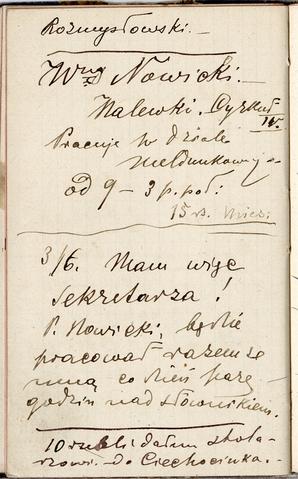 Rozmysłowski.—
Wny Nowicki.—
Nalewki. Cyrkuł
IV.
Pracuje w dziale
meldunkowym
od 9 – 3 p. poł:
15 rs. mies:
3/6. Mam więc
sekretarza!
P. Nowicki, będzie
pracował razem ze
mną co dzień parę
godzin nad słownikiem.
10 rubli dałem stola-
rzowi - do Ciechocinka.—